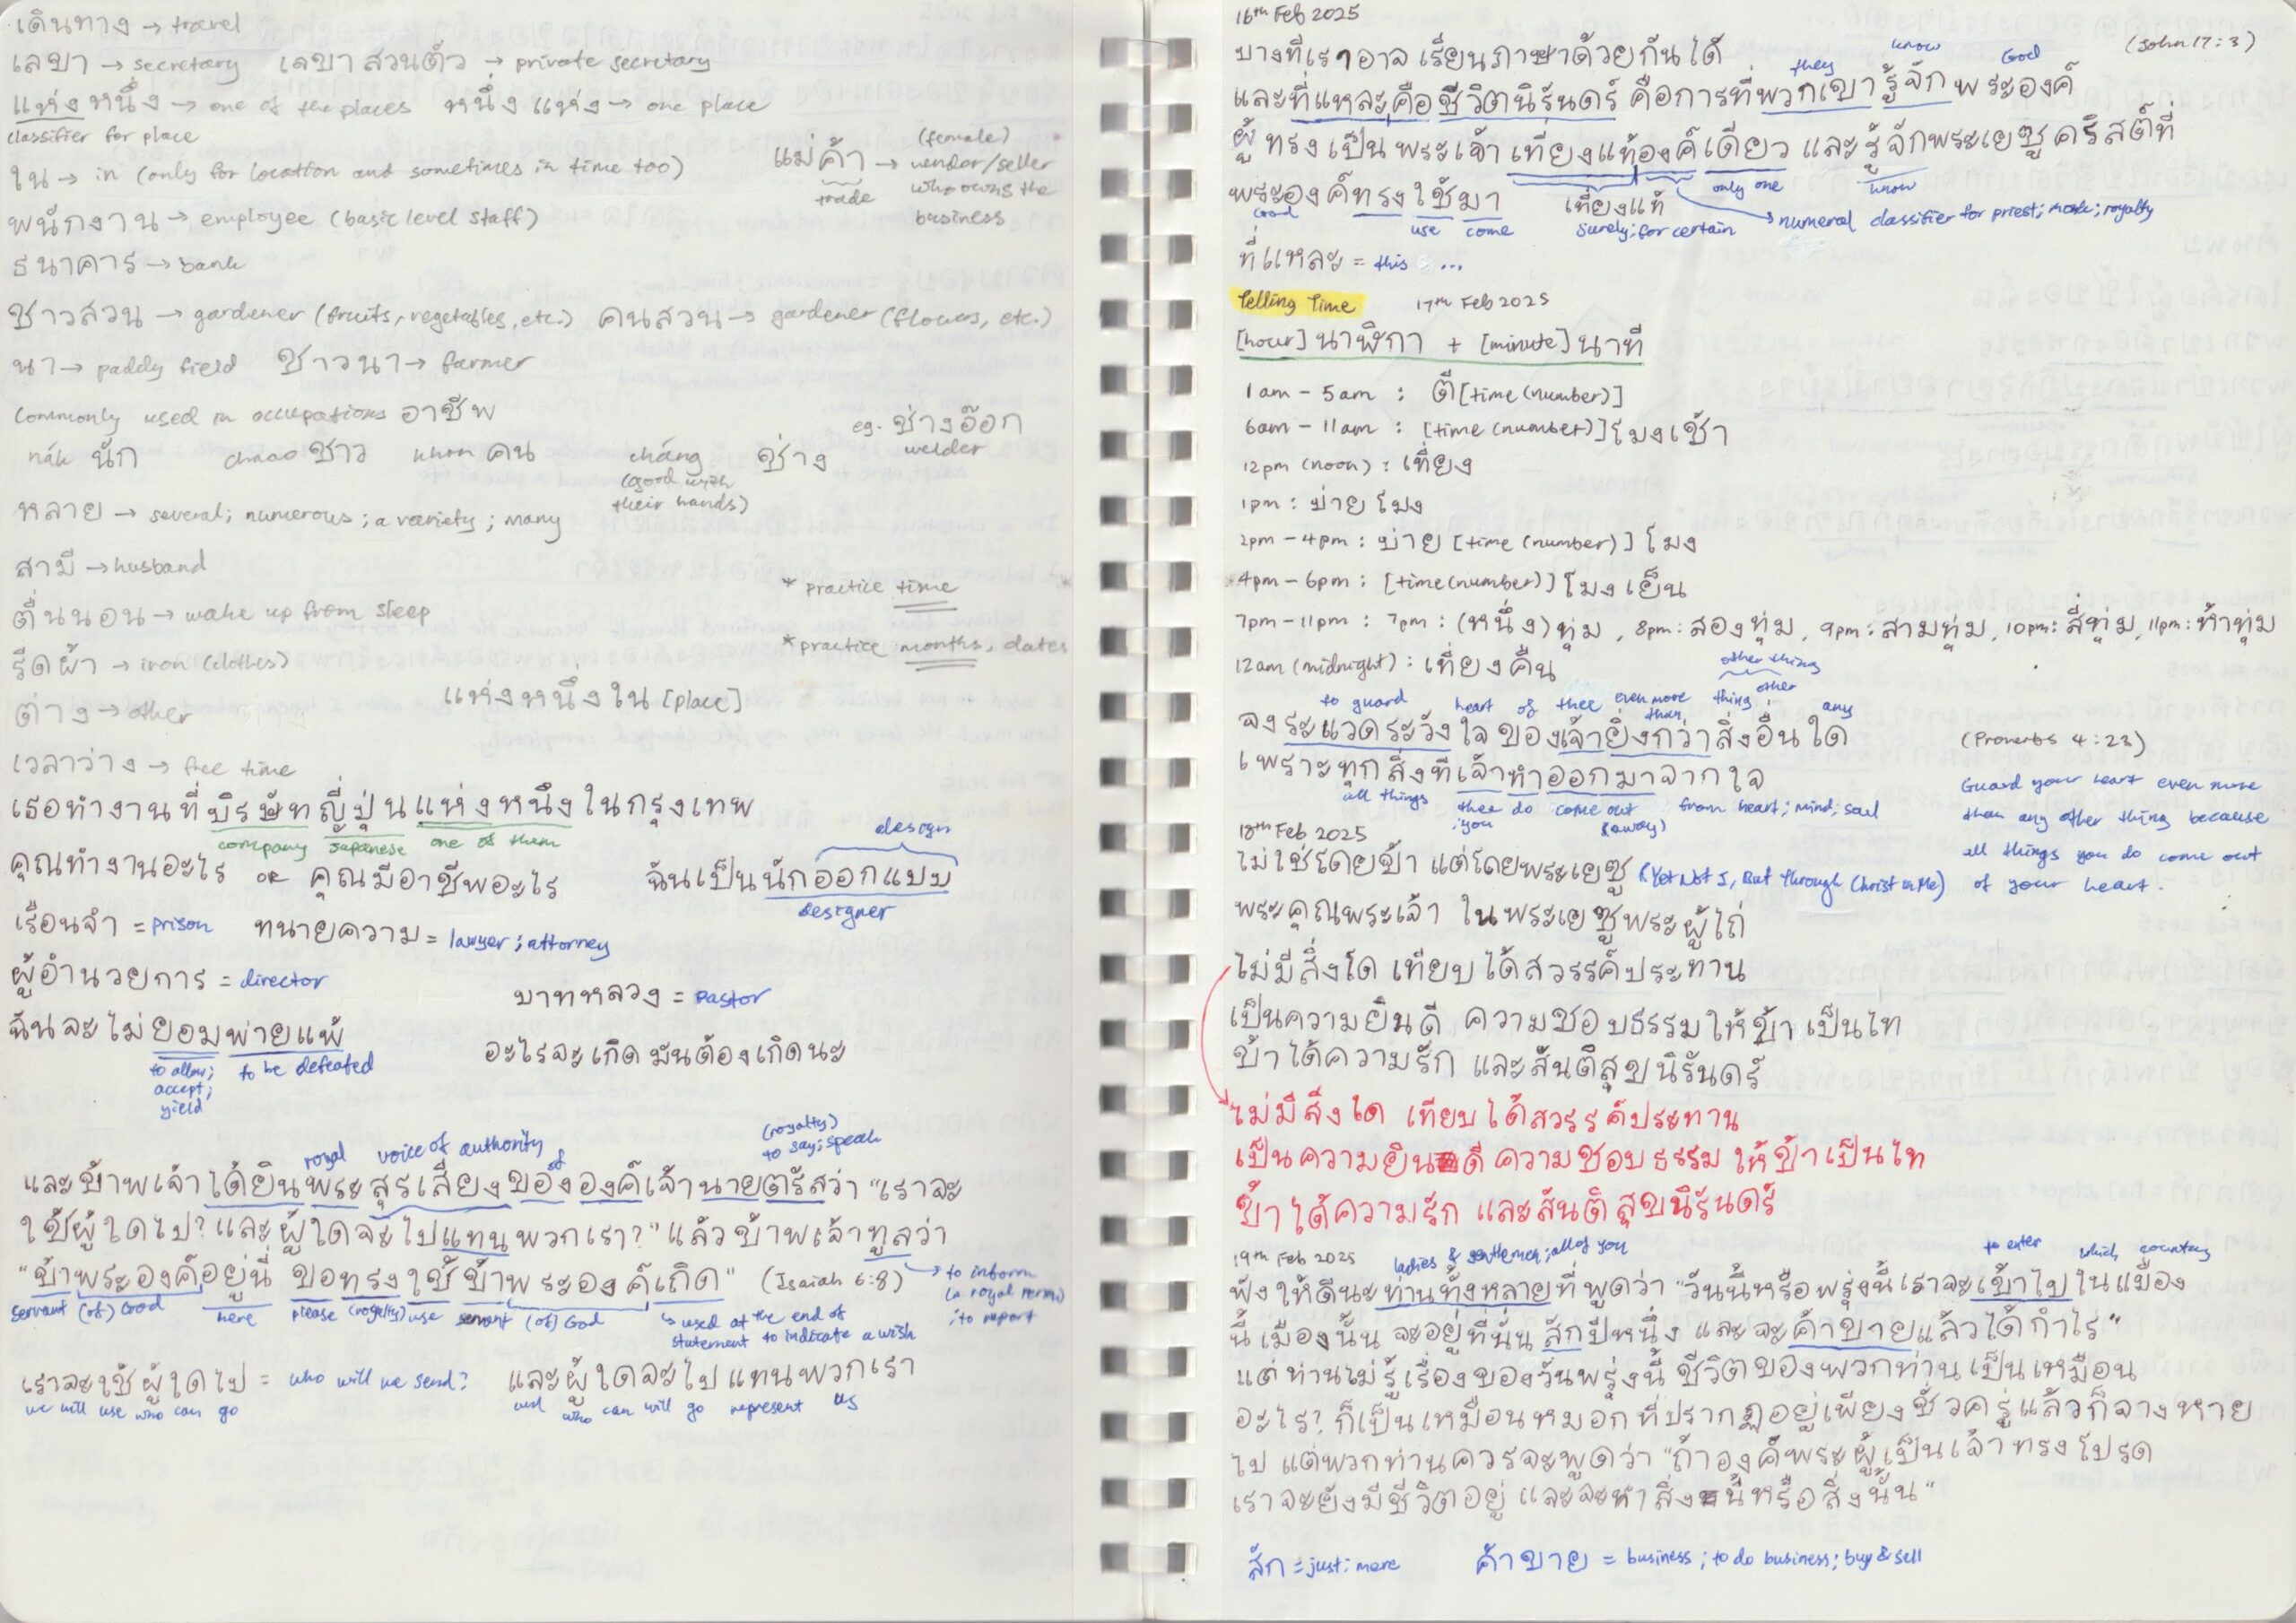 เดินทาง → travel
เลขา → secretary เลขาส่วนตัว → private secretary
แห่งหนึ่ง → one of the places หนึ่งแห่ง → one place
classifier for place
ใน → in (only for location and sometimes in time too)
แม่ค้า → (female) vendor/seller who owns the business
trade
พนักงาน → employee (basic level staff)
ธนาคาร → bank
ชาวสวน → gardener (fruits, vegetables, etc.) คนสวน → gardener (flowers, etc.)
นา → paddy field ชาวนา → farmer
commonly used in occupations อาชีพ
nák นัก chaao ชาว khon คน cháng ช่าง
(good with their hands)
eg. ช่างอ๊อก
welder
หลาย → several; numerous; a variety; many
สามี → husband
ตื่นนอน → wake up from sleep
* practice time
รีดผ้า → iron (clothes)
* practice months, dates
ต่าง → other
แห่งหนึ่งใน [place]
เวลาว่าง → free time
เธอทำงานที่บริรษัทญี่ปุ่นแห่งหนึ่งในกรุงเทพ
company Japanese one of them
คุณทำงานอะไร or คุณมีอาชีพอะไร
ฉันเป็นนักออกแบบ
design
designer
เรือนจำ = prison ทนายความ = lawyer; attorney
ผู้อำนวยการ = director
บาทหลวง = pastor
ฉันจะไม่ยอมพ่ายแพ้
to allow; accept; yield
to be defeated
อะไรจะเกิดมันต้องเกิดนะ
royal voice of authority of (royalty) to say; speak
และข้าพเจ้าได้ยินพระสุรเสียงขององค์เจ้านายตรัสว่า "เราจะ
ใช้ผู้ใดไป? และผู้ใดจะไปแทนพวกเรา?" แล้วข้าพเจ้าทูลว่า
"ข้าพระองค์อยู่นี่ ขอทรงใช้ข้าพระองค์เถิด" (Isaiah 6:8)
servant (of) God here please (royalty) use servant (of) God
↳ used at the end of statement to indicate a wish
→ to inform (a royal term) ; to report
เราจะใช้ผู้ใดไป = who will we send?
we will use who can go
และผู้ใดจะไปแทนพวกเรา
and who can will go represent us
16th Feb 2025
บางทีเราอาจเรียนภาษาด้วยกันได้
(John 17:3)
they know God
และที่แหละคือชีวิตนิรันดร์ คือการที่พวกเขารู้จักพระองค์
ผู้ทรงเป็นพระเจ้าเที่ยงแท้องค์เดียว และรู้จักพระเยซูคริสต์ที่
only one know
พระองค์ทรงใช้มา
God use come
เที่ยงแท้
surely; for certain
→ numeral classifier for priest; monk; royalty
ที่แหละ = this ...
Telling Time 17th Feb 2025
[hour] นาฬิกา + [minute] นาที
1am - 5am : ตี [time (number)]
6am - 11am : [time (number)] โมงเช้า
12pm (noon) : เที่ยง
1pm : บ่ายโมง
2pm - 4pm : บ่าย [time (number)] โมง
4pm - 6pm : [time (number)] โมงเย็น
7pm - 11pm : 7pm : (หนึ่ง) ทุ่ม , 8pm : สองทุ่ม , 9pm : สามทุ่ม, 10pm : สี่ทุ่ม, 11pm : ห้าทุ่ม
12am (midnight) : เที่ยงคืน
other thing
to guard heart of thee even more than thing other any
จงระแวดระวังใจของเจ้ายิ่งกว่าสิ่งอื่นใด
เพราะทุกสิ่งที่เจ้าทำออกมาจากใจ
all things thee ; you do come out (away) from heart; mind; soul
(Proverbs 4:23)
Guard your heart even more
than any other thing because
all things you do come out
of your heart.
18th Feb 2025
ไม่ใช่โดยข้า แต่โดยพระเยซู (Yet Not I, But Through Christ in Me)
พระคุณพระเจ้า ในพระเยซูพระผู้ไถ่
ไม่มีสิ่งใด เทียบได้สวรรค์ประทาน
เป็นความยินดี ความชอบธรรมให้ข้าเป็นไท
ข้าได้ความรัก และสันติสุขนิรันดร์
ไม่มีสิ่งใด เทียบได้สวรรค์ประทาน
เป็นความยินดี ความชอบธรรม ให้ข้าเป็นไท
ข้าได้ความรัก และสันติสุขนิรันดร์
19th Feb 2025
ladies & gentlemen; all of you to enter which country
ฟังให้ดีนะท่านทั้งหลายที่พูดว่า "วันนี้หรือพรุ่งนี้เราจะเข้าไปในเมือง
นี้เมืองนั้น จะอยู่ที่นั่นสักปีหนึ่ง และจะค้าขายแล้วได้กำไร"
แต่ท่านไม่รู้เรื่องของวันพรุ่งนี้ ชีวิตของพวกท่านเป็นเหมือน
อะไร? ก็เป็นเหมือนหมอกที่ปรากฏอยู่เพียงชั่วครู่แล้วก็จางหาย
ไป แต่พวกท่านควรจะพูดว่า "ถ้าองค์พระผู้เป็นเจ้าทรงโปรด
เราจะยังมีชีวิตอยู่ และจะทำสิ่งนี้หรือสิ่งนั้น"
สัก = just; mere ค้าขาย = business; to do business; buy & sell